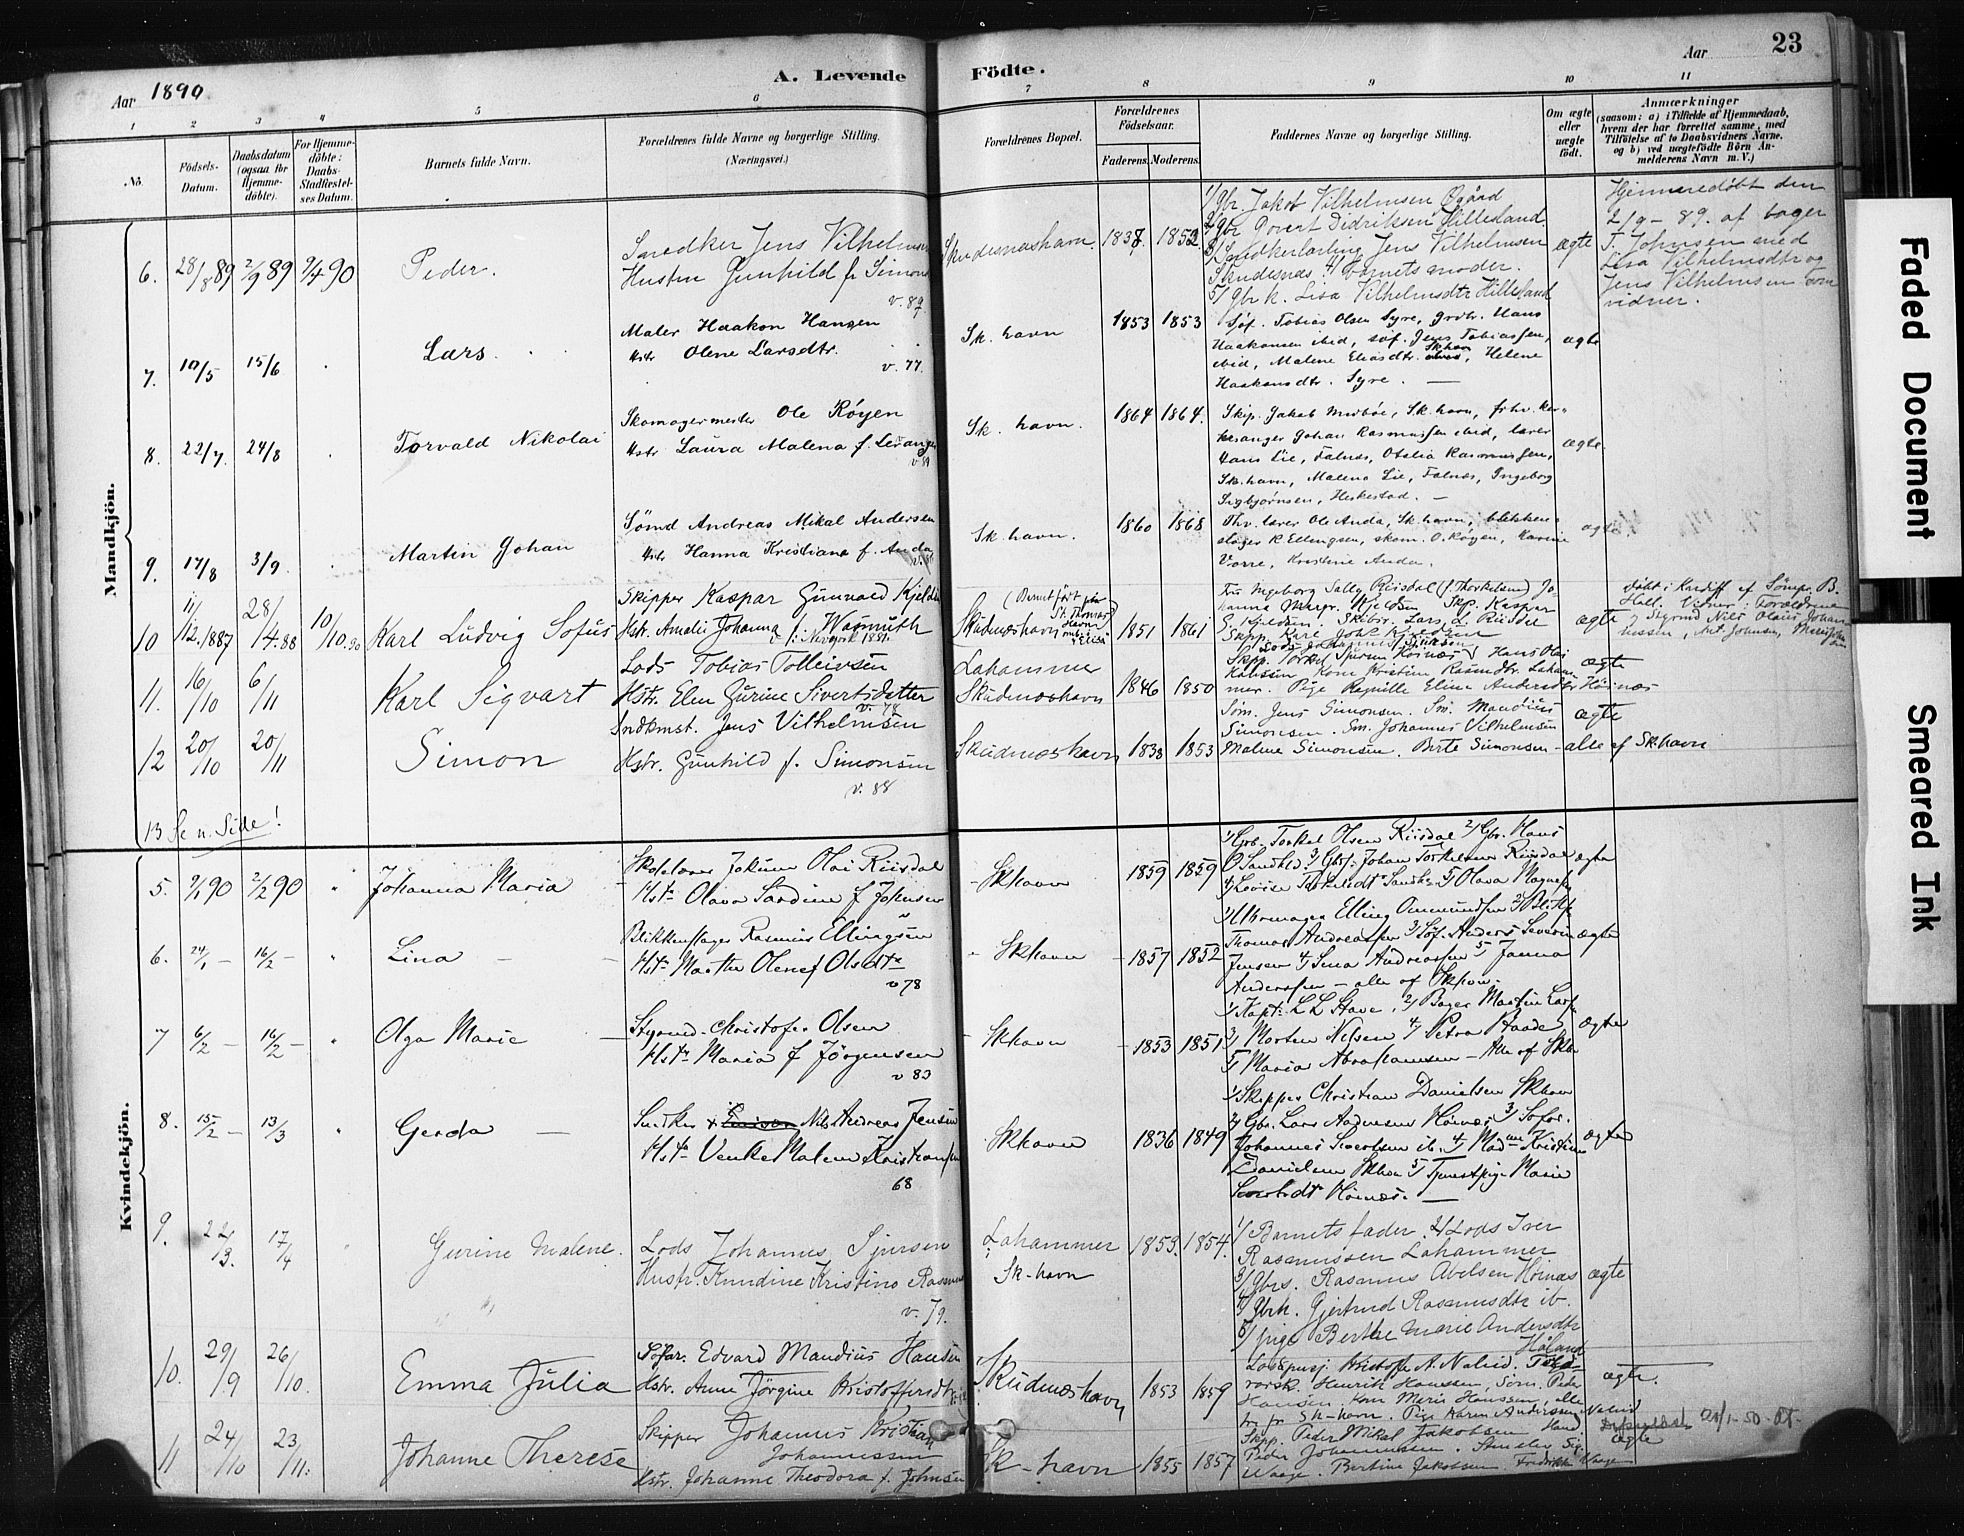 Aar 1890
A. Levende Födte.
Aar 23
1 2 3 4 5 6 7 8 9 10 11
No.
Födsels-Datum.
Daabsdatum (ogsaa for Hjemmedöbte).
For Hjemmedöbte: Daabs-Stadfæstelses Datum.
Barnets fulde Navn.
Forældrenes fulde Navne og borgerlige Stilling. (Næringsvei.)
Forældrenes Bopæl.
Forældrenes Födselsaar.
Faderens. Moderens.
Faddernes Navne og borgerlige Stilling.
Om ægte eller uægte födt.
Anmærkninger
(saasom: a) i Tilfælde af Hjemmedaab, hvem der har forrettet samme, med Tilföielse af to Daabsvidners Navne, og b) ved uægtefödte Börn Anmelderens Navn m. V.)
Mandkjön.
6. 28/8 89 2/9 89 9/4 90 Peder.
Snedker Jens Vilhelmsen
Hustru Gunhild f. Simons
v. 89.
Skudesnæshavn 1838. 1852.
1/ Gbr. Jakob Vilhelmsen Øgård
2/ Gbr Govert Didriksen Hillesland
3/ Snedkerlærling Jens Vilhelmsen
Skudesnæs 4/ barnets moder.
5/ Gbr k. Lisa Vilhelmsdtr Hillesland
ægte
Hjemmedøbt den
2/9 - 89. af bager
T. Johnsen med
Lisa Vilhelmsdtr og
Jens Vilhelmsen som
vidner.
7. 10/5 15/6 Lars.
Maler Haakon Hansen
Hstr Olene Larsdtr.
v. 77.
Sk. havn 1853 1853
Søf. Tobias Olsen Syre, grbr. Hans
Haakonsen ibid, søf. Jens Tobiassen,
ibid, Malene Eliasdtr. Skhavn, Helene
Haakonsdtr. Syre. —
ægte
8. 22/7. 24/8 Torvald Nikolai
Skomagermester Ole Röyen
Hstr Laura Malena f. Levanger
v. 89
Sk. havn. 1864 1864.
Skip. Jakob
Sk. havn, fhv. kirkesanger Johan Rasmussen ibid, lærer
Hans Lie, Falnes, Otelia Rasmussen,
Sk. havn, Malena Lie, Falnes, Ingeborg
Sigbjørnsen, Heskestad. —
ægte.
9. 17/8 3/9. Martin Johan
Sømd Andreas Mikal Andersen
Hstr Hanna Kristiane f. Anda
Sk. havn. 1860 1868
Fhv. lærer Ole Anda, Sk. havn, blikkenslager R Ellingsen, skom. O. Røyen, Karine
Vorre, Kristine Anda.
ægte
10 11/12. 1887 28/4. 88 10/10. 90 Karl Ludvig Sofus
Skipper Kaspar Gunvald Kjeldsen
Hstr. Amalie Johanna f. Warmuth
v. i Newyork 1881.
Skudnæshavn 1851 1861
Fru Ingeborg Sally Riisdal (f. Thorkelsen) Johanna Margr. Kjeldsen Skp. Kaspar
G. Kjeldsen. Skibsr. Lars L. Riisdal
Skpp. Karl Joh. Kjeldsen
ægte
Døbt i Kardiff af Sømpr. B.
Hall. Vidner: Forældrene
Sigvard Nils Olaus Johannessen, Ant. Johnsen,
11. 16/10 6/11 Karl Sigvart
Lods Tobias Tolleivsen
Hstr. Elen Gurine Sivertsdatter
v. 78
Lahammer
Skudnæshavn 1846 1850
Skpp. Torkel Sjursen Høinæs Hans Olai
Jakobsen Kone Kristine Rasmdtr. Lahammer. Pige Ragnille Eline Andersdtr Høinæs
ægte
12 20/10 20/11 Simon
Sndkmst. Jens Vilhelmsen
Hstr. Gunhild f. Simonsen
v. 88
Skudnæshavn 1838 1853
Søm. Jens Simonsen. Sm. Mandius
Simonsen. Sm. Johannes Vilhelmsen
Malene Simonsen. Berte Simonsen - alle af Sk.havn
ægte
13 Se n. Side!
Kvindekjön.
5. 9/1 90 2/2 90 Johanna Maria
Skolelærer Jokum Olai Riisdal
Hstr Olava Sardine f Johnsen
Skhavn 1859 1859
1/ Grb. Torkel Olsen Riisdal 2/ Gbr. Hans
O Sandhld 3/ Gbrf. Johan Torkelsen Riisdal
4/ Lovise Torkelsdtr Sandh. 5/ Olava
ægte
6. 24/1 - 16/2 - Lina
Blikkenslager Rasmus Ellingsen
Hstr Marthe Olene f Olsdtr
v 78
Skhavn 1857 1852
1/ Uhrmager Elling Ommundsen 2/ Blikf
Thomas Andreassen 3/ Søf. Anders Severin
Jensen 4/ Lena Andreassen 5/ Janna
Anderssen - alle af Skhavn.
ægte
7 6/2 - 16/2 - Olga Marie
Styrmd. Christofer Olsen
Hstr Maria f Jörgensen
v 83
Skhavn 1853 1851
1/ Kapt. L L Stave, 2/ Bager Martin Lars
3/ Morten Nilsen 4/ Petra Haade
5/ Maria Abrahamsen - Alle af Skhn
ægte
8. 15/2 - 13/3 Gerda
Snedker Nils Andreas Jensen
Hstr Venke Malene Kristians
68
Skhavn 1836 1849
1/ Skipper Christian Danielsen Skhavn
2/ Gbr. Lars Andersen Høinæs 3/ Søfor.
Johannes Sivertsen ib. 4/ Madam Kristine
Danielsen Skhn 5/ Tjenestpige Marie
Sivertsdtr Høinæs. —
ægte
9. 22/3. 17/4 Gurine Malene.
Lods Johannes Sjursen
Hustr. Knudine Kristine Rasm
v. 79.
Lahammer
Sk-havn 1853. 1854.
1/ Barnets fader. 2/ Lods Iver
Rasmussen Lahammer
3/ Gbrs. Rasmus Abelsen Høinæs
4/ Gbrk. Gjertrud Rasmusdtr ib.
5/ pige Berthe Marie Andersdtr
Håland
ægte
10. 29/9 26/10. Emma Julia
Søfar. Edvard Mandius Hansen
Hstr. Anne Jörgine Kristoffersdtr
Skudnæshavn 1853 1859
Kristoffer A. Nalvid.
Henrik Hanssen, Søm. Peder
Hansen, Kone Marie Hanssen, alle
fr Sk-havn. Pige Karen Anderssen Nalvid
ægte.
11 24/10 23/11. Johanne Therese
Skipper Johannes Kristian
Johannessen
Hstr. Johanne Theodora f. Johnsen
Sk-havn 1855 1857
Skpp. Peder Mikal Jakobsen
Peder Johannessen.
Waage. Bertine Jakobsen Fredrikke Waage
ægte
21/1-50.
Faded Document
Smeared Ink